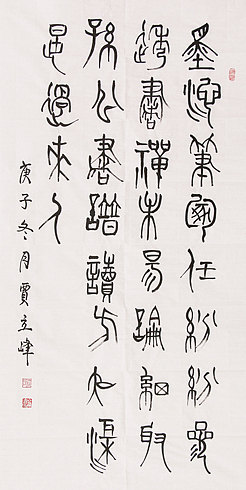 墨池筆冢任紛紛參
透書禪未易論細取
孫公書譜讀方知渠
是過來人
庚子冬月賈立峰